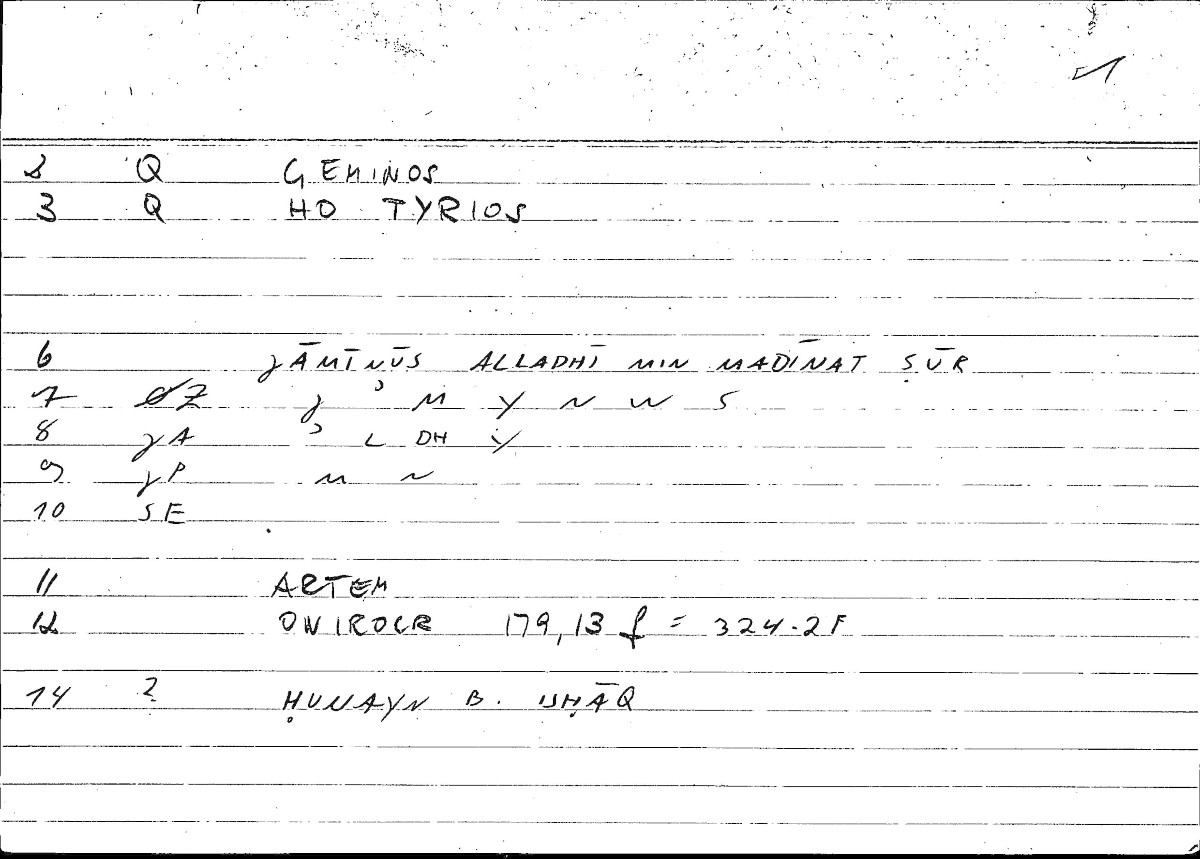 1
2 Q GEMINOS
3 Q HO TYRIOS
6 ǧĀMĪNŪS ALLADHĪ MIN MADĪNAT ṢŪR
7 ǧ ʾ M Y N W S
8 ȷA ʾ L DH Y
9 ȷP M N
10 SE
11 ARTEM
12 ONIROCR 179,13 f = 324.2F
14 ? ḤUNAYN B. ISḤĀQ